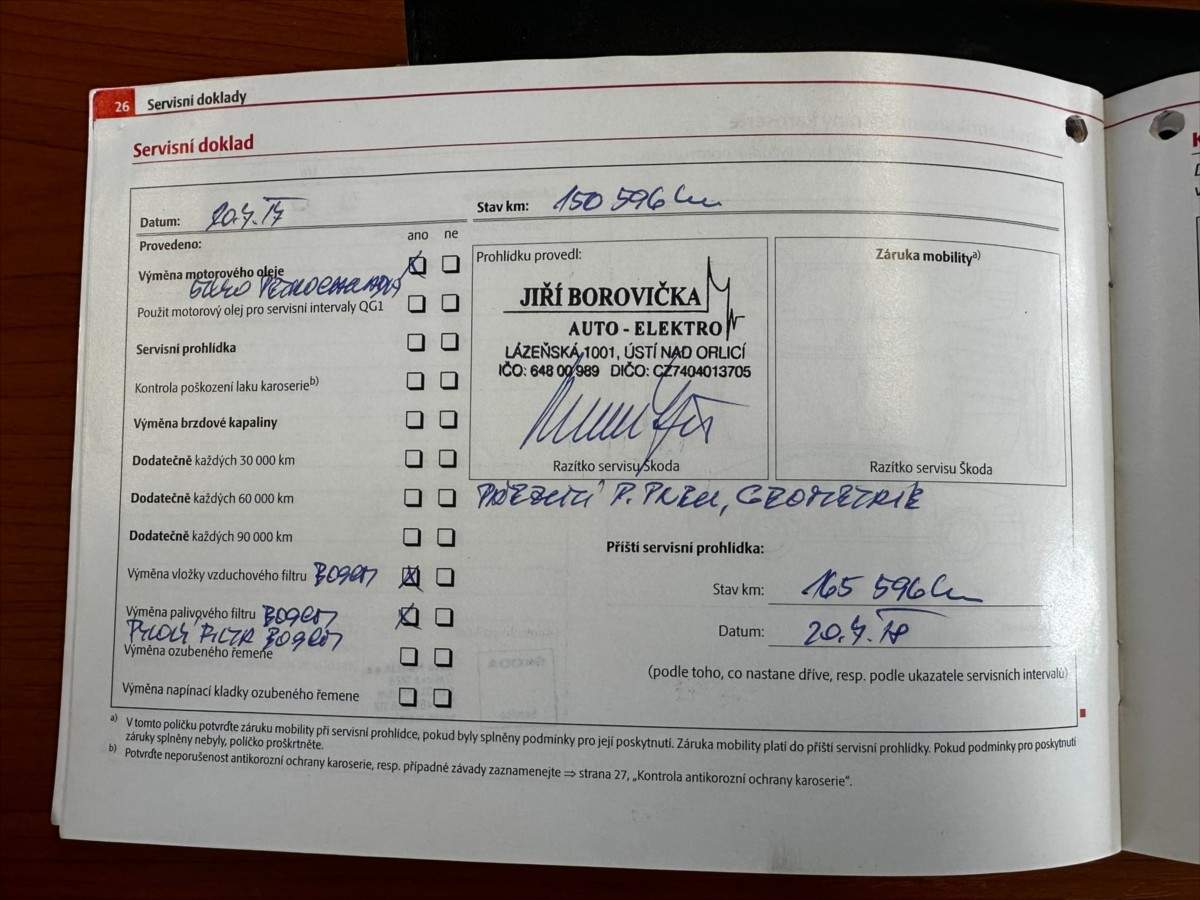 26 Servisní doklady
Servisní doklad
Datum: 20.4.17
Stav km: 150 596 km
Provedeno:
ano ne
Výměna motorového oleje
Použit motorový olej pro servisní intervaly QG1
Servisní prohlídka
Kontrola poškození laku karoserie b)
Výměna brzdové kapaliny
Dodatečně každých 30 000 km
Dodatečně každých 60 000 km
Dodatečně každých 90 000 km
Výměna vložky vzduchového filtru
Výměna palivového filtru
Výměna ozubeného řemene
Výměna napínací kladky ozubeného řemene
Prohlídku provedl:
JIŘÍ BOROVIČKA
AUTO - ELEKTRO
LÁZEŇSKÁ 1001, ÚSTÍ NAD ORLICÍ
IČO: 648 00 989 DIČO: CZ7404013705
Razítko servisu Škoda
Záruka mobility a)
Razítko servisu Škoda
GEOMETRIE
Příští servisní prohlídka:
Stav km: 165 596 km
Datum: 20.4.18
(podle toho, co nastane dříve, resp. podle ukazatele servisních intervalů)
a) V tomto políčku potvrďte záruku mobility při servisní prohlídce, pokud byly splněny podmínky pro její poskytnutí. Záruka mobility platí do příští servisní prohlídky. Pokud podmínky pro poskytnutí
záruky splněny nebyly, políčko proškrtněte.
b) Potvrďte neporušenost antikorozní ochrany karoserie, resp. případné závady zaznamenejte ⇒ strana 27, „Kontrola antikorozní ochrany karoserie“.